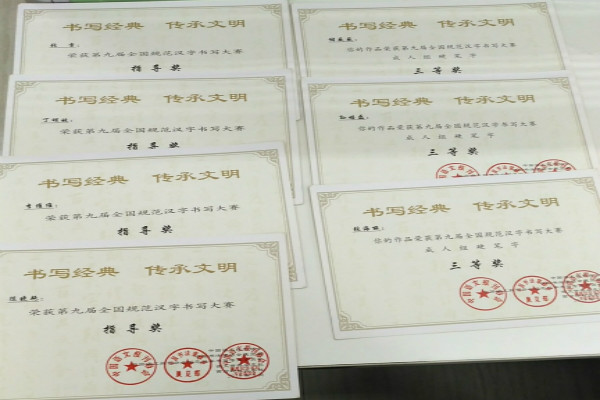 书写经典 传承文明
荣获第九届全国规范汉字书写大赛
指导奖
书写经典 传承文明
荣获第九届全国规范汉字书写大赛
指导奖
书写经典 传承文明
荣获第九届全国规范汉字书写大赛
指导奖
书写经典 传承文明
荣获第九届全国规范汉字书写大赛
指导奖
书写经典 传承文明
您的作品荣获第九届全国规范汉字书写大赛
成人组硬笔字
三等奖
书写经典 传承文明
您的作品荣获第九届全国规范汉字书写大赛
成人组硬笔字
三等奖
书写经典 传承文明
您的作品荣获第九届全国规范汉字书写大赛
成人组硬笔字
三等奖